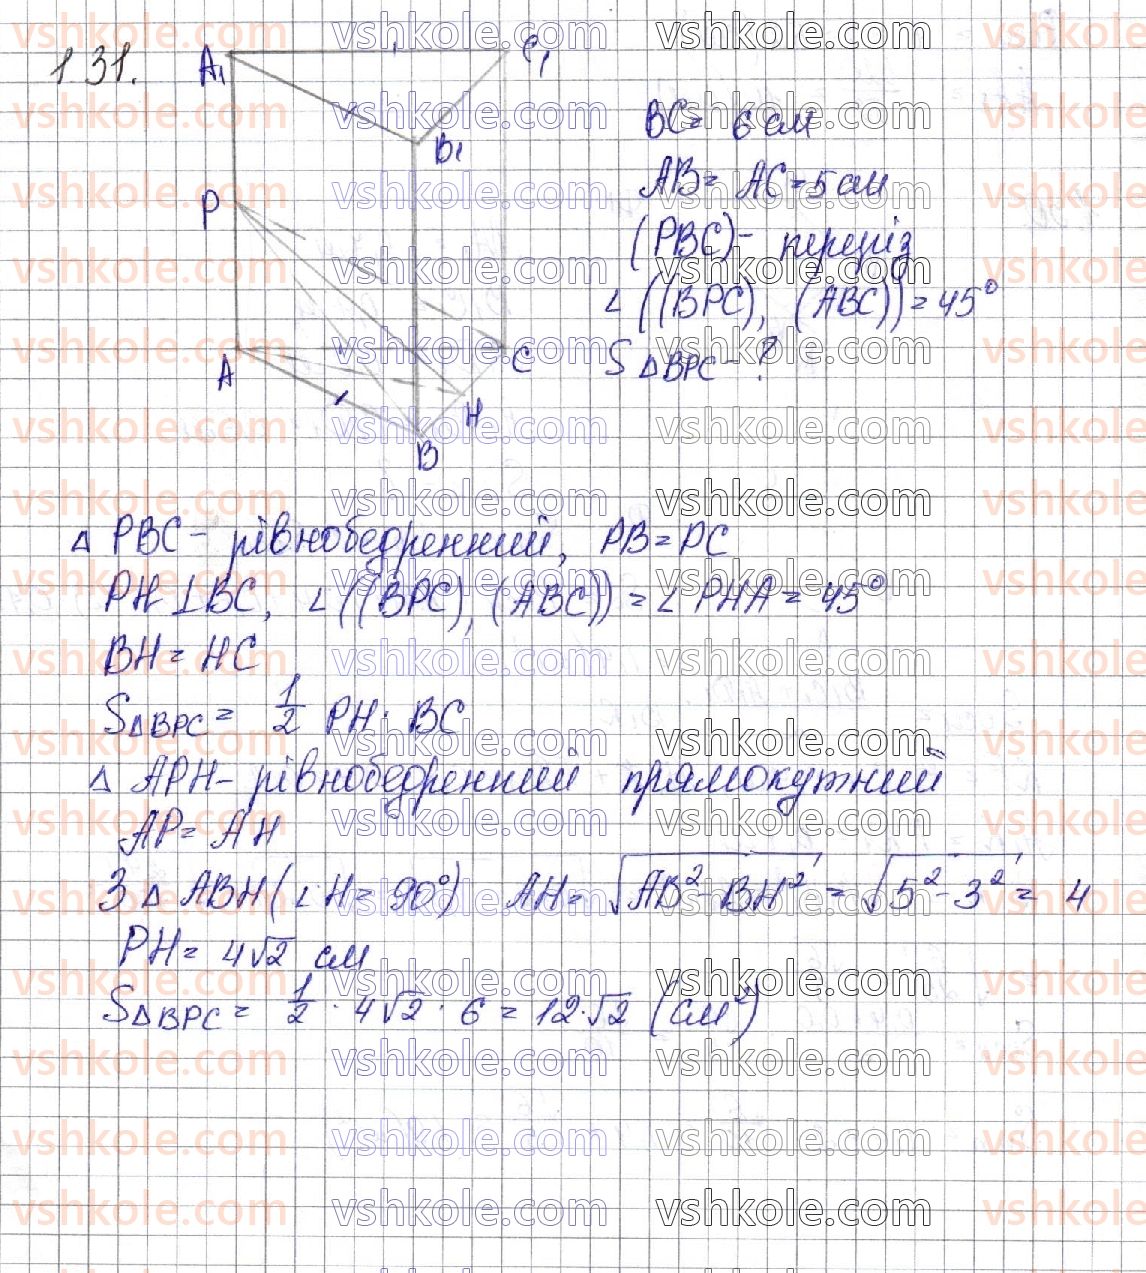 1.31.
A₁ C₁
B₁
P
A C
H
B
BC = 6 см
AB = AC = 5 см
(PBC) - переріз
∠((BPC), (ABC)) = 45°
S△BPC - ?
△ PBC - рівнобедренний, PB = PC
PH ⊥ BC, ∠((BPC), (ABC)) = ∠ PHA = 45°
BH = HC
S△BPC = 1/2 PH · BC
△ APH - рівнобедренний прямокутний
AP = AH
З △ ABH (∠H = 90°) AH = √(AB² - BH²) = √(5² - 3²) = 4
PH = 4√2 см
S△BPC = 1/2 · 4√2 · 6 = 12·√2 (см²)
vshkole.com